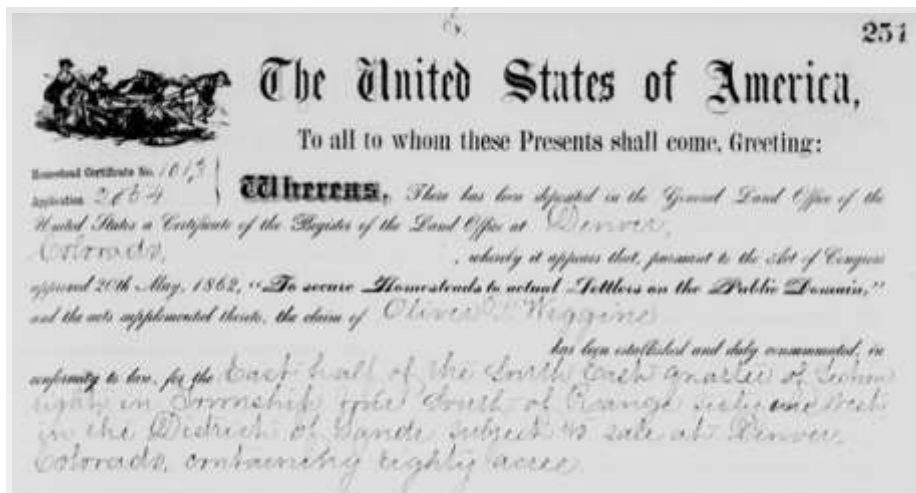 251
The United States of America,
To all to whom these Presents shall come, Greeting:
Homestead Certificate No. 1013
Application 2864
Whereas, There has been deposited in the General Land Office of the
United States a Certificate of the Register of the Land Office at Denver,
Colorado, , whereby it appears that, pursuant to the Act of Congress
approved 20th May, 1862, "To secure Homesteads to actual Settlers on the Public Domain,"
and the acts supplemental thereto, the claim of Oliver P Wiggins
has been established and duly consummated, in
conformity to law, for the East half of the South East quarter of Section
eight in Township South of Range sixty West
in the District of Lands subject to sale at Denver,
Colorado, containing eighty acres.